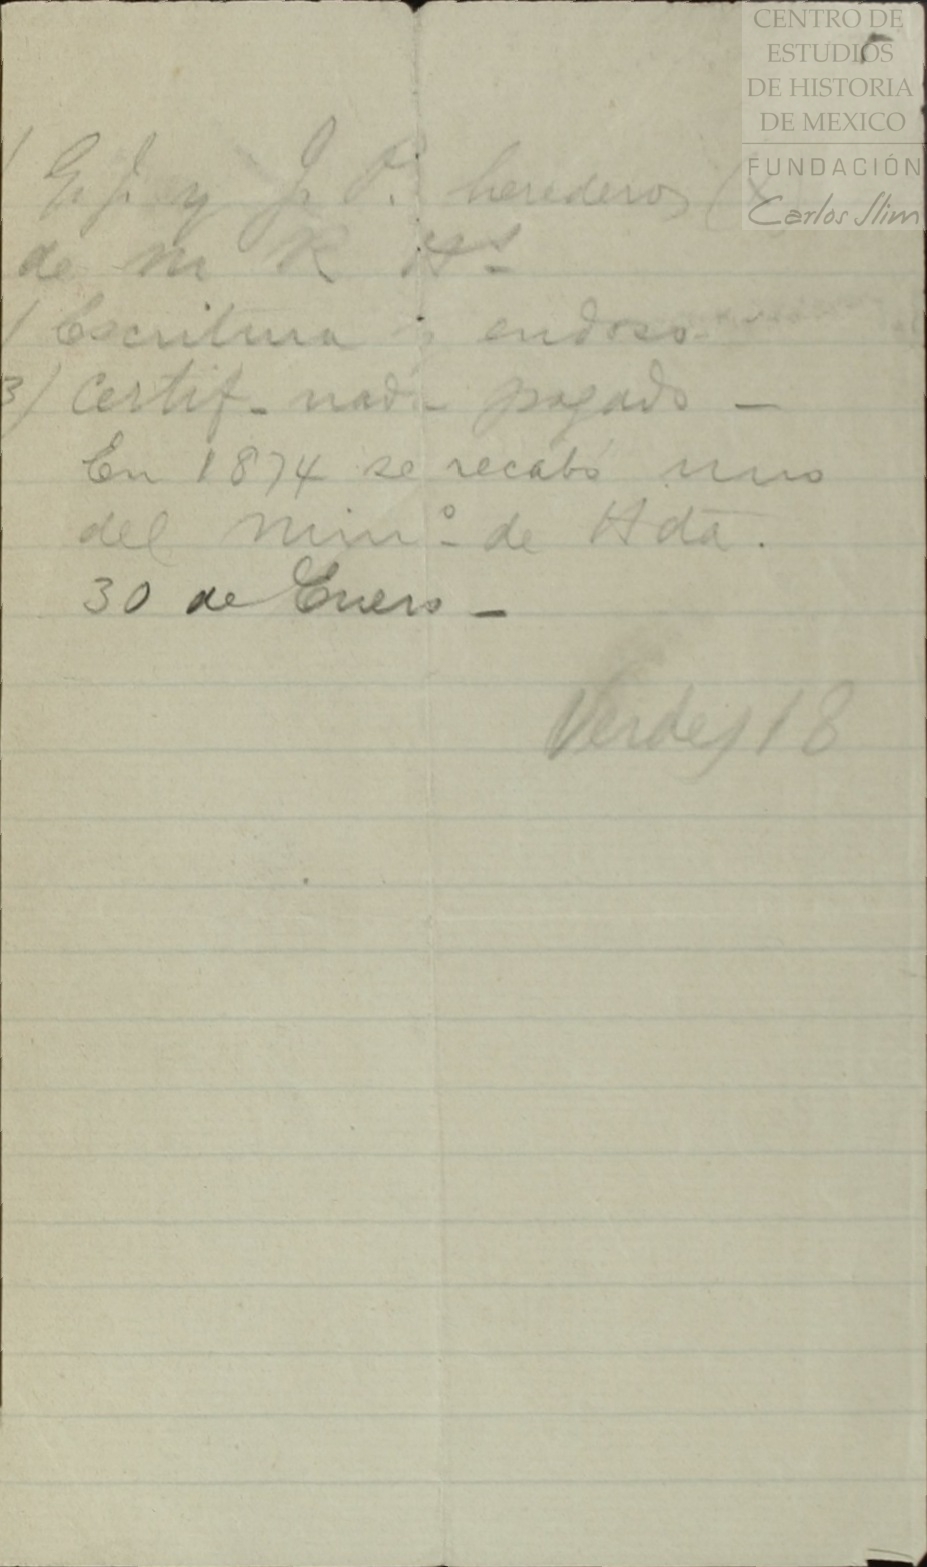 CENTRO DE
ESTUDIOS
DE HISTORIA
DE MEXICO
FUNDACIÓN
Carlos Slim
/ G. J. y J. P. herederos (X)
de M R Hs
/ Escritura y endoso
3/ Certif. nada pagado —
En 1874 se recabó uno
del Mino. de Hda.
30 de Enero —
Verdes 18